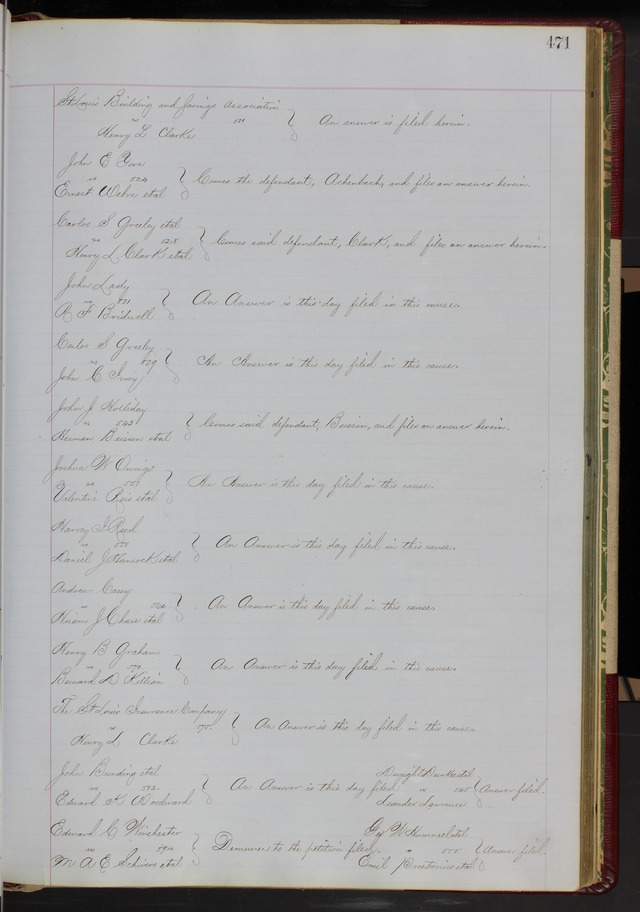 471
St Louis Building and Savings Association
vs 511 An answer is filed herein.
Henry L Clarke
John E Yore
vs 524 Comes the defendant, Achenbach, and files an answer herein.
Ernest Wehre etal
Carlos S Greeley etal
vs 528 Comes said defendant, Clark, and files an answer herein.
Henry L Clark etal
John Lady
vs An Answer is this day filed in this cause.
R F Bridwell
Carlos S Greeley
vs 529 An Answer is this day filed in this cause.
John C Ivory
John J Holliday
vs 543 Comes said defendant, Beissen, and files an answer herein.
Herman Beissen etal
Joshua W Owings
vs 551 An Answer is this day filed in this cause.
Valentine Reis etal
Harvey I Reed
vs 555 An Answer is this day filed in this cause.
Daniel J Hancock etal
Andrew Casey
vs An Answer is this day filed in this cause.
Hiram J Chase etal
Henry B Graham
vs 570 An Answer is this day filed in this cause.
Bernard D Killian
The St Louis Insurance Company
vs 575 An Answer is this day filed in this cause.
Henry L Clarke
John Bunding etal
vs 592 An Answer is this day filed
Edward K Woodward
Dwight Durkee etal
vs 525 Answer filed.
Leander Lawrence
Edward C Winchester
vs 594 Demurrer to the petition filed.
M A E Schivers etal
Geo W Hummel etal
vs 555 Answer filed
Emil etal